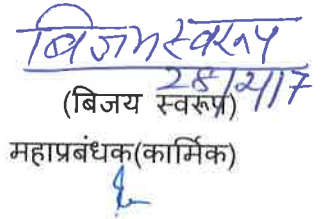 बिजय स्वरूप
28/2/17
(बिजय स्वरूप)
महाप्रबंधक(कार्मिक)